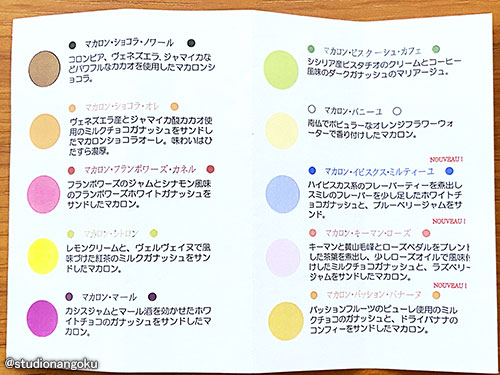 マカロン・ショコラ・ノワール
コロンビア、ヴェネズエラ、ジャマイカな
どパワフルなカカオを使用したマカロンシ
ョコラ。
マカロン・ショコラ・オレ
ヴェネズエラ産とジャマイカ酸カカオ使
用のミルクチョコガナッシュをサンドし
たマカロンショコラオーレ。味わいはひ
たすら濃厚。
マカロン・フランボワーズ・カネル
フランボワーズのジャムとシナモン風味
のフランボワーズホワイトガナッシュを
サンドしたマカロン。
マカロン・シトロン
レモンクリームと、ヴェルヴェイヌで風
味づけた紅茶のミルクガナッシュをサン
ドしたマカロン。
マカロン・マール
カシスジャムとマール酒を効かせたホワ
イトチョコのガナッシュをサンドしたマ
カロン。
マカロン・ピスターシュ・カフェ
シシリア産ピスタチオのクリームとコーヒー
風味のダークガナッシュのマリアージュ。
マカロン・バニーユ
南仏でポピュラーなオレンジフラワーウ
ォーターで香り付けしたマカロン。
NOUVEAU!
マカロン・イビスクス・ミルティーユ
ハイビスカス系のフレーバーティーを煮出しス
ミレのフレーバーを少し足したホワイトチ
ョコガナッシュと、ブルーベリージャムをサ
ンド。
NOUVEAU!
マカロン・キーマン・ローズ
キーマンと黄山毛峰とローズペダルをブレンド
した茶葉を煮出し、少しローズオイルで風味付
けしたミルクチョコガナッシュと、ラズベリー
ジャムをサンドしたマカロン。
NOUVEAU!
マカロン・パッション・バナーヌ
パッションフルーツのピューレ使用のミル
クチョコのガナッシュと、ドライバナナの
コンフィーをサンドしたマカロン。
@studionangoku